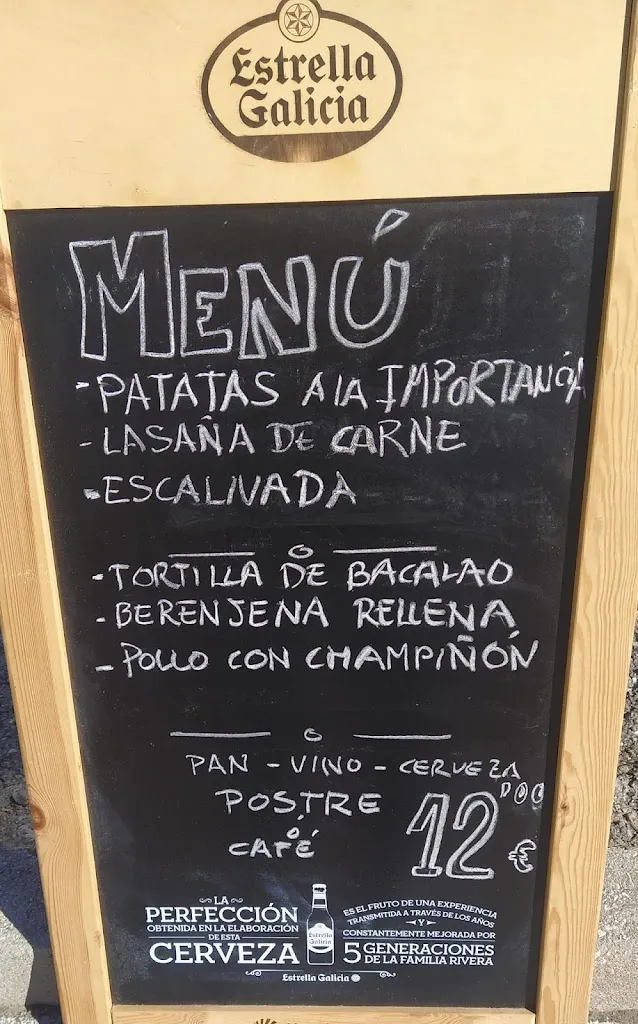 Estrella
Galicia
MENÚ
-PATATAS A lA IMPORTANCIA
-LASAÑA DE CARNE
-ESCALIVADA
o
-TORTILLA DE BACALAO
-BERENJENA RELLENA
-POLLO CON CHAMPIÑÓN
o
PAN - VINO - CERVEZA
POSTRE
ó
CAFÉ
12'00 €
LA
PERFECCIÓN
OBTENIDA EN LA ELABORACIÓN
DE ESTA
CERVEZA
Estrella
Galicia
ES EL FRUTO DE UNA EXPERIENCIA
TRANSMITIDA A TRAVÉS DE LOS AÑOS
Y
CONSTANTEMENTE MEJORADA POR
5 GENERACIONES
DE LA FAMILIA RIVERA
Estrella Galicia